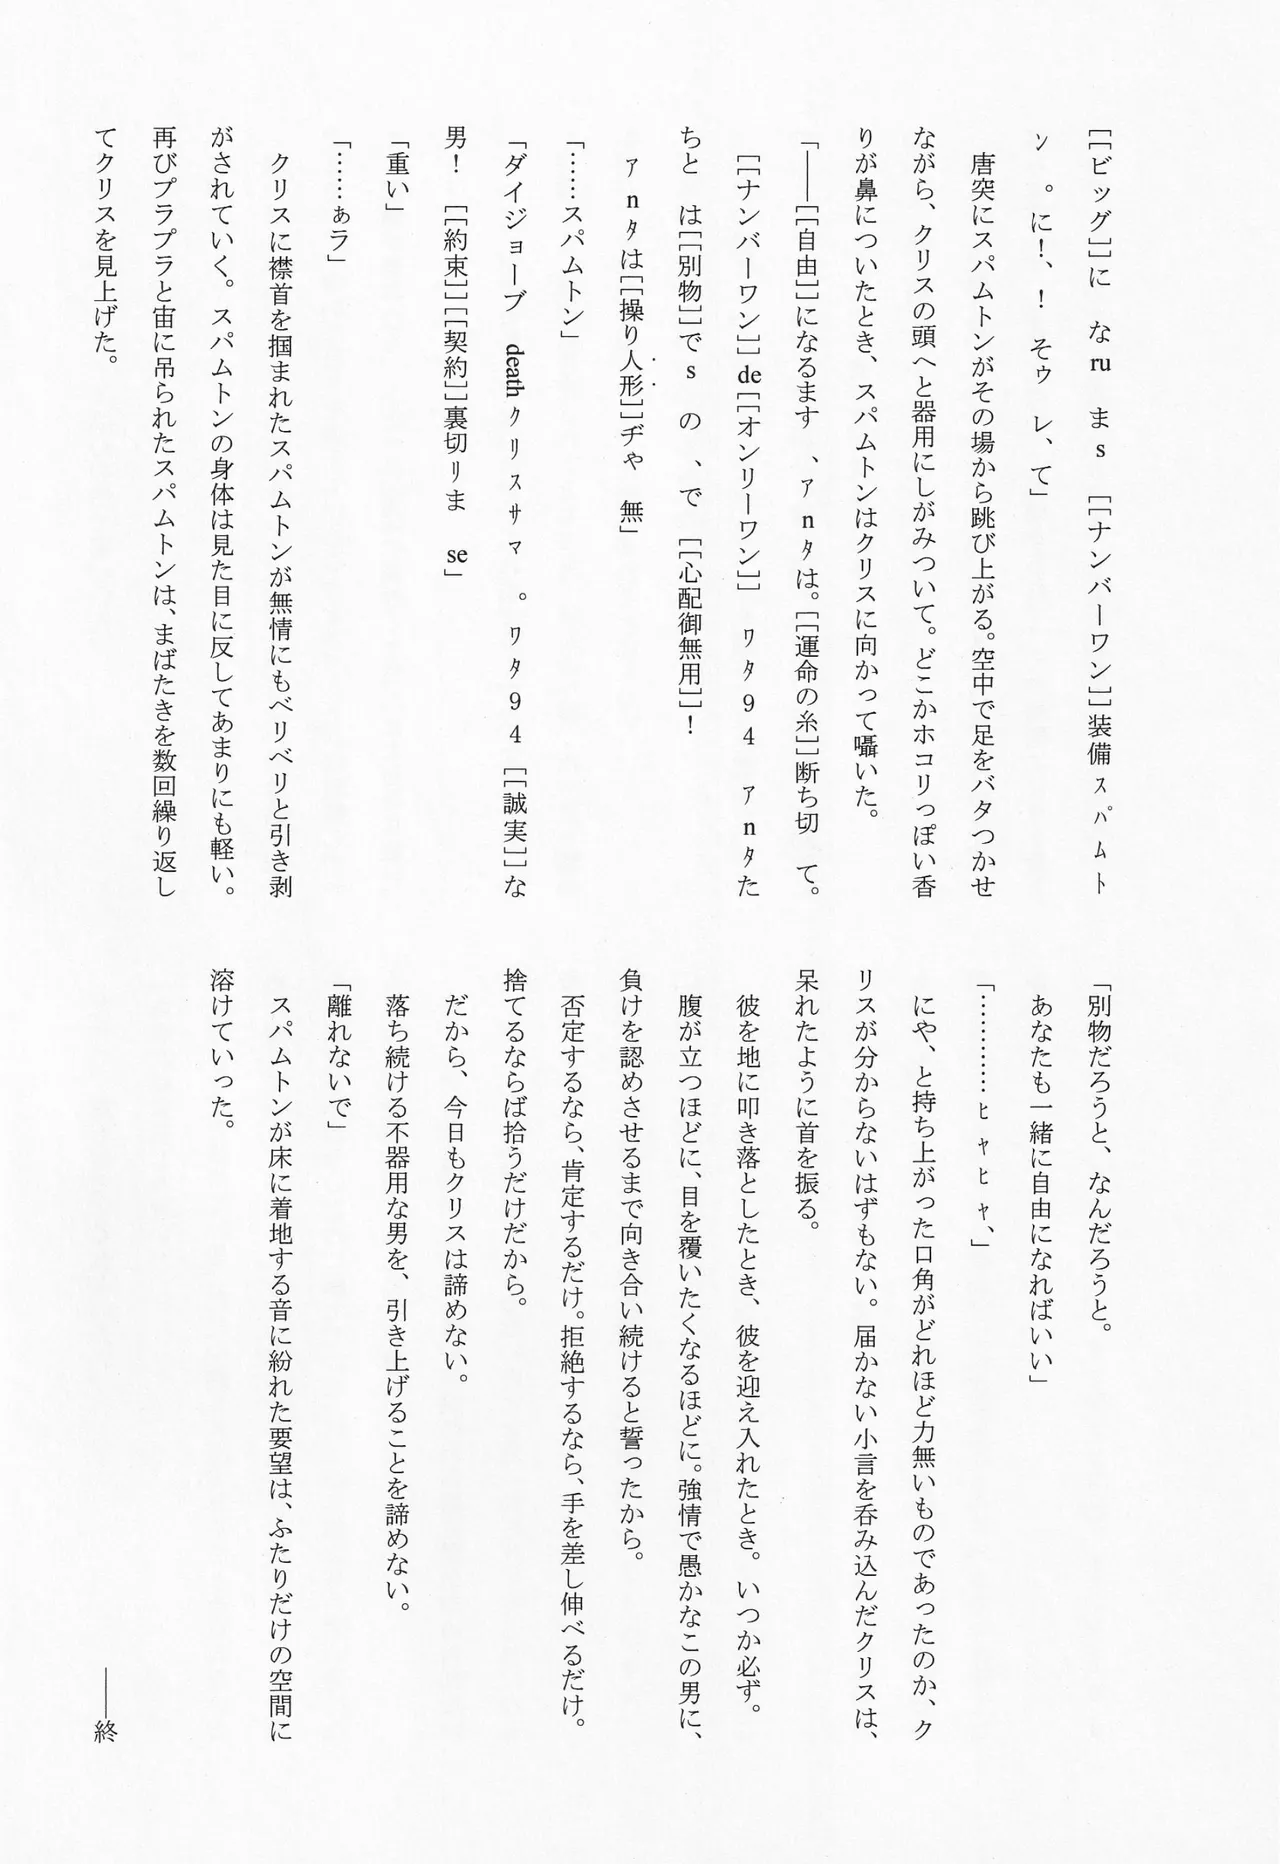 [[ビッグ]]に　なru　まs　[[ナンバーワン]]装備ｽﾊﾟﾑﾄ
ﾝ　。に!、!　そゥ　レ、て」
　唐突にスパムトンがその場から跳び上がる。空中で足をバタつかせ
ながら、クリスの頭へと器用にしがみついて。どこかホコリっぽい香
りが鼻についたとき、スパムトンはクリスに向かって囁いた。
「――[[自由]]になるます　、ｱnﾀは。[[運命の糸]]断ち切　て。
　[[ナンバーワン]]de[[オンリーワン]]　ﾜﾀ94　ｱnﾀた
ちと　は[[別物]]でs　の　、で　[[心配御無用]]!
　ｱnﾀは[[操り人形]]ヂゃ　無」
「……スパムトン」
「ダイジョーブ　deathｸﾘｽｻﾏ　。ﾜﾀ94　[[誠実]]な
男!　[[約束]][[契約]]裏切ﾘま　se」
「重い」
「……ぁラ」
　クリスに襟首を掴まれたスパムトンが無情にもベリベリと引き剥
がされていく。スパムトンの身体は見た目に反してあまりにも軽い。
再びプラプラと宙に吊られたスパムトンは、まばたきを数回繰り返し
てクリスを見上げた。
「別物だろうと、なんだろうと。
　あなたも一緒に自由になればいい」
「…………ﾋｬﾋｬ、」
　にや、と持ち上がった口角がどれほど力無いものであったのか、ク
リスが分からないはずもない。届かない小言を呑み込んだクリスは、
呆れたように首を振る。
　彼を地に叩き落としたとき、彼を迎え入れたとき。いつか必ず。
　腹が立つほどに、目を覆いたくなるほどに。強情で愚かなこの男に、
負けを認めさせるまで向き合い続けると誓ったから。
　否定するなら、肯定するだけ。拒絶するなら、手を差し伸べるだけ。
捨てるならば拾うだけだから。
　だから、今日もクリスは諦めない。
　落ち続ける不器用な男を、引き上げることを諦めない。
「離れないで」
　スパムトンが床に着地する音に紛れた要望は、ふたりだけの空間に
溶けていった。
――終